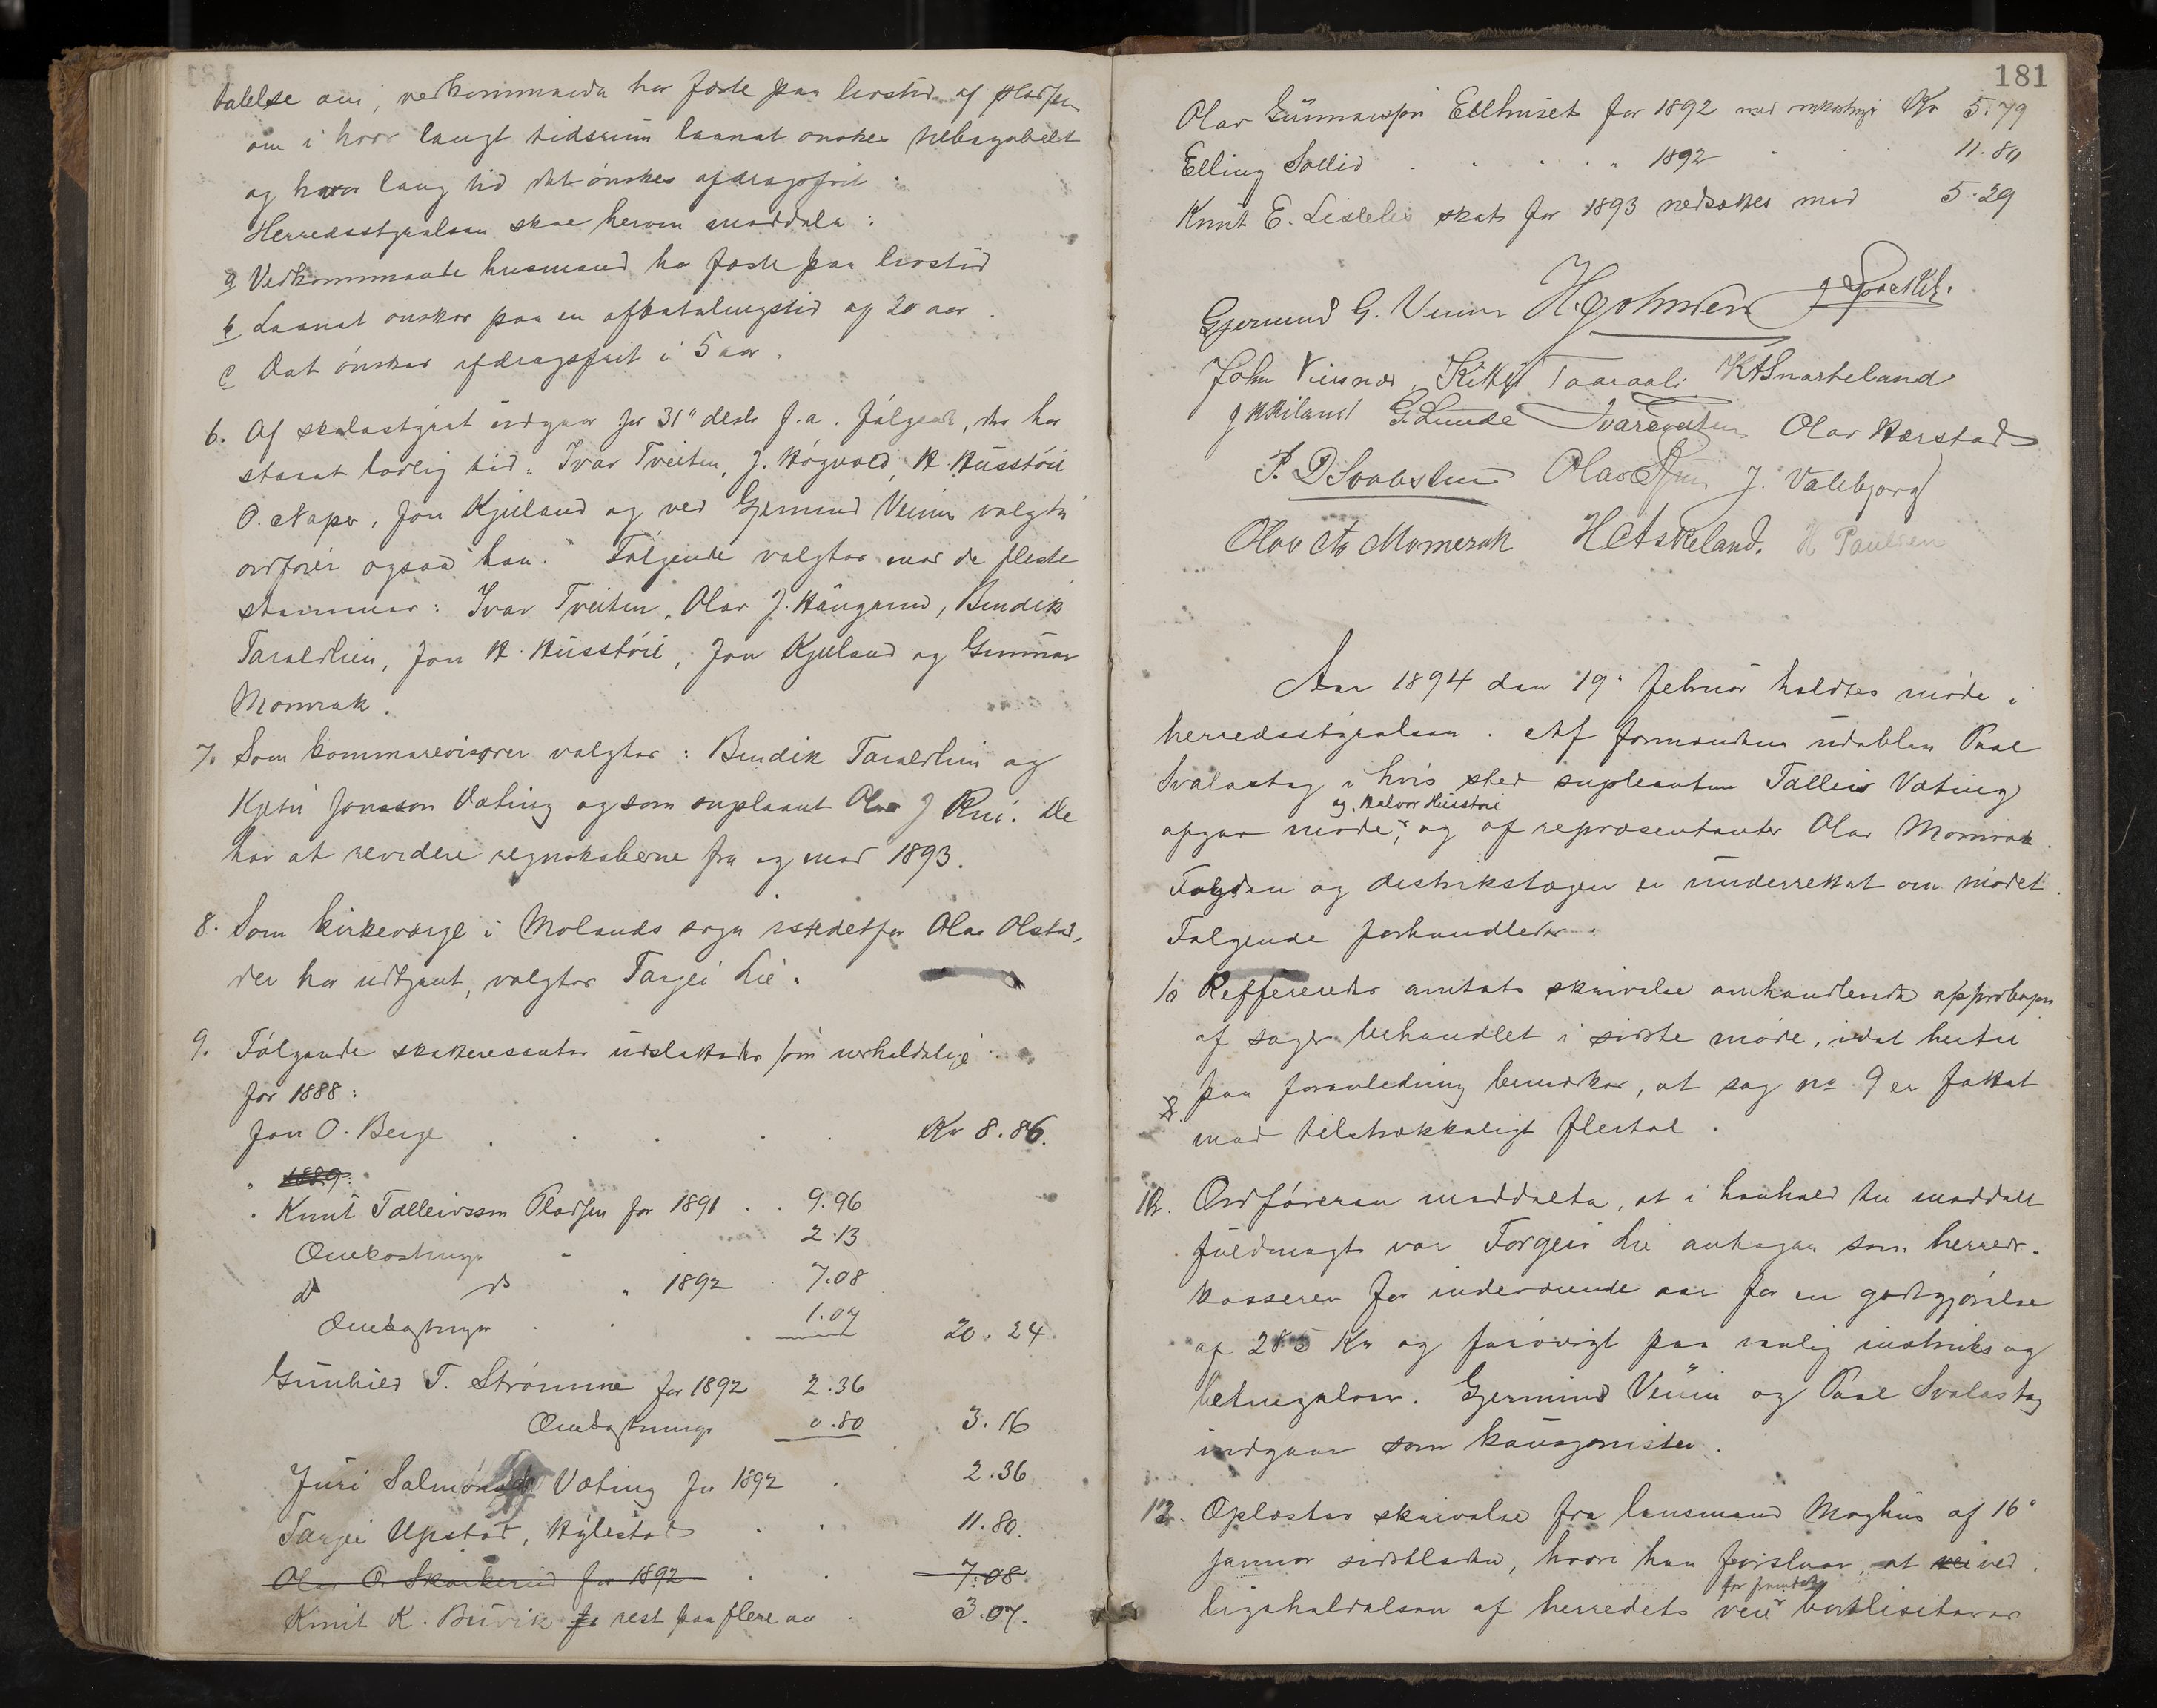 talelse om, vedkommende har fæste paa livstid af pladsen
om i hvor langt tidsrum laanet ønskes tilbagebetalt
og hvor lang tid det ønskes afdragsfrit.
Herredsstyrelsen skal herom meddele:
a Vedkommende husmand har fæste paa livstid
b Laanet ønskes paa en afbetalingstid af 20 aar.
c Det ønskes afdragsfrit i 5 aar.
6. Af skolestyret udgaar pr 31" decb f.a. følgende, der har
staaet lovlig tid: Ivar Tveiten, J. Høgvold, H. Husstøil
O. Naper, Jon Kjiland og ved Gjermund Veum valgtes
ordfører ogsaa han. Følgende valgtes med de fleste
stemmer: Ivar Tveiten, Olav J. Haugerud, Bendik
Taraldlien, Jon H. Husstøil, Jon Kjiland og Gunnar
Momrak.
7. Som kommunerevisorer valgtes: Bendik Taraldlien og
Kjetil Jonsson Væting og som supleant Olav J Rui. De
har at revidere regnskaberne fra og med 1893.
8. Som kirkeværge i Molands sogn istedetfor Olav Olstad,
der har udtjent, valgtes Targei Lie.
9. Følgende skatterestanter udslettedes som uerholdelige
for 1888:
Jon O. Berge . . . . . Kr 8.86.
" 1889:
" Knut Talleivsson Pladsen for 1891 . . 9.96
Omkostninger " 2.13
do do " 1892 . 7.08
Omkostninger . . . 1.07 20.24.
Gunhild T. Strømme for 1892 2.36
Omkostninger 0.80 3.16
Juri Salmonsd Væting for 1892 . 2.36
Targei Upstad, Hylestad . . 11.80.
Olav O. Skarkerud for 1892 . . 7.08.
Knut K. Buvik fo rest paa flere aar . 3.07.
181
Olav Gunnarsson Eldhuset for 1892 med omkostninger Kr 5.79
Elling Sollid . . . . " 1892 " . 11.80
Knut E. Lislelis skat for 1893 nedsættes med 5.29
Gjermund G. Veum H. Johnsen
John Viesnes, Kittyl Taaraali. K A Snarteland
J K Kiland G. Lunde Ivar Tveiten Olav Harstad
P. D Svalastug Olav J Rui J. Valebjørg
Olav Aa Momerak H A Askeland. H Paulsen
Aar 1894 den 19" februar holdtes møde i
herredsstyrelsen. Af formænden udeblev Paal
Svalastog i hvis sted supleanten Talleiv Væting
og Halvor Husstøil
afgav møde, og af repræsentanter Olav Momrak.
Fogden og distriktslægen er underrettet om mødet.
Følgende forhandledes:
10 Reffereredes amtets skrivelse omhandlende approbasjon
af sager behandlet i sidste møde, idet hertil
paa foranledning bemærkes, at sag no 9 er fattet
med tilstrækkeligt flertal.
11. Ordføreren meddelte, at i henhold til meddelt
fuldmagt var Torgeir Lie antagen som herreds-
kasserer for indeværende aar for en godtgjørelse
af 285 Kr og forøvrigt paa vanlig instruks og
betingelser. Gjermund Veum og Paal Svalastog
indgaar som kausjonister.
12. Oplæstes skrivelse fra lensmand Moghus af 16"
januar sidstleden, hvori han foreslaar, at vei ved
for fremtiden
ligeholdelsen af herredets veie bortliciteres